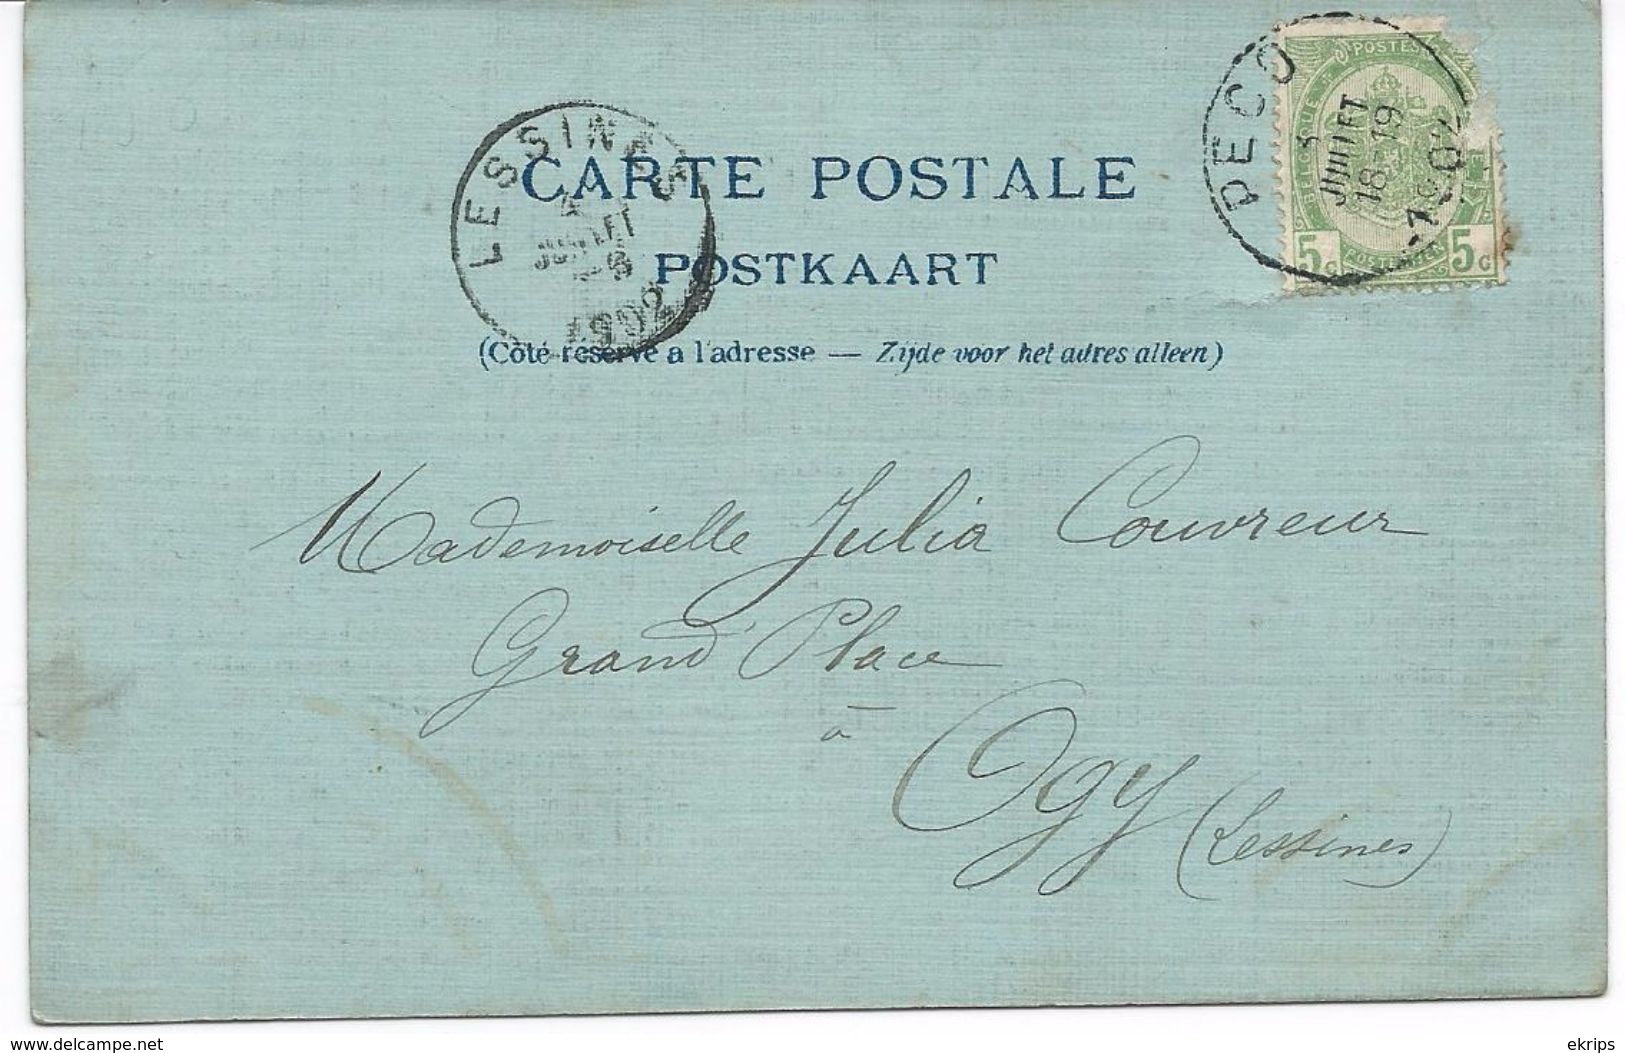 CARTE POSTALE
POSTKAART
(Côté réservé a l'adresse — Zijde voor het adres alleen)
LESSINES
4
JUILLET
1902
PECQ
JUILLET
18-19
1902
POSTES
BELGIQUE
5c
5c
Mademoiselle Julia Couvreur
Grand'Place
à
Ogy (Lessines)
www.delcampe.net
ekrips